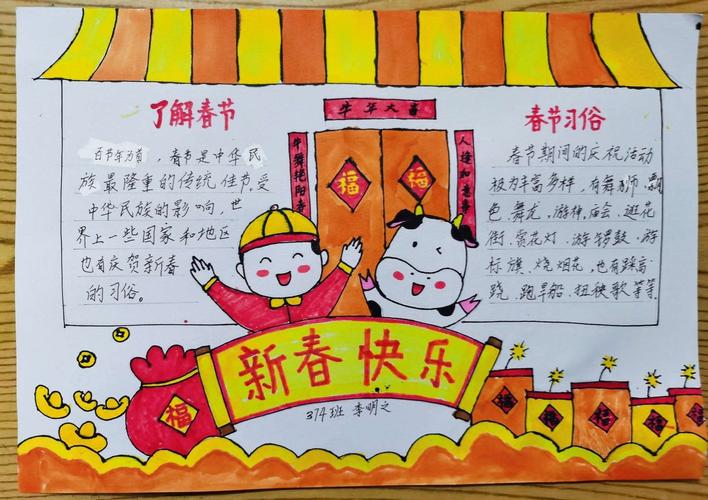 牛年大吉
牛舞艳阳春
人逢如意
福
福
了解春节
百节年为首,春节是中华民
族最隆重的传统佳节,受
中华民族的影响,世
界上一些国家和地区
也有庆贺新春
的习俗。
春节习俗
春节期间的庆祝活动
极为丰富多样,有舞狮、飘
色、舞龙、游神、庙会、逛花
街、赏花灯、游锣鼓、游
标旗、烧烟花,也有踩高
跷、跑旱船、扭秧歌等等.
新春快乐
福
福
福
福
福
福
374班 李明之